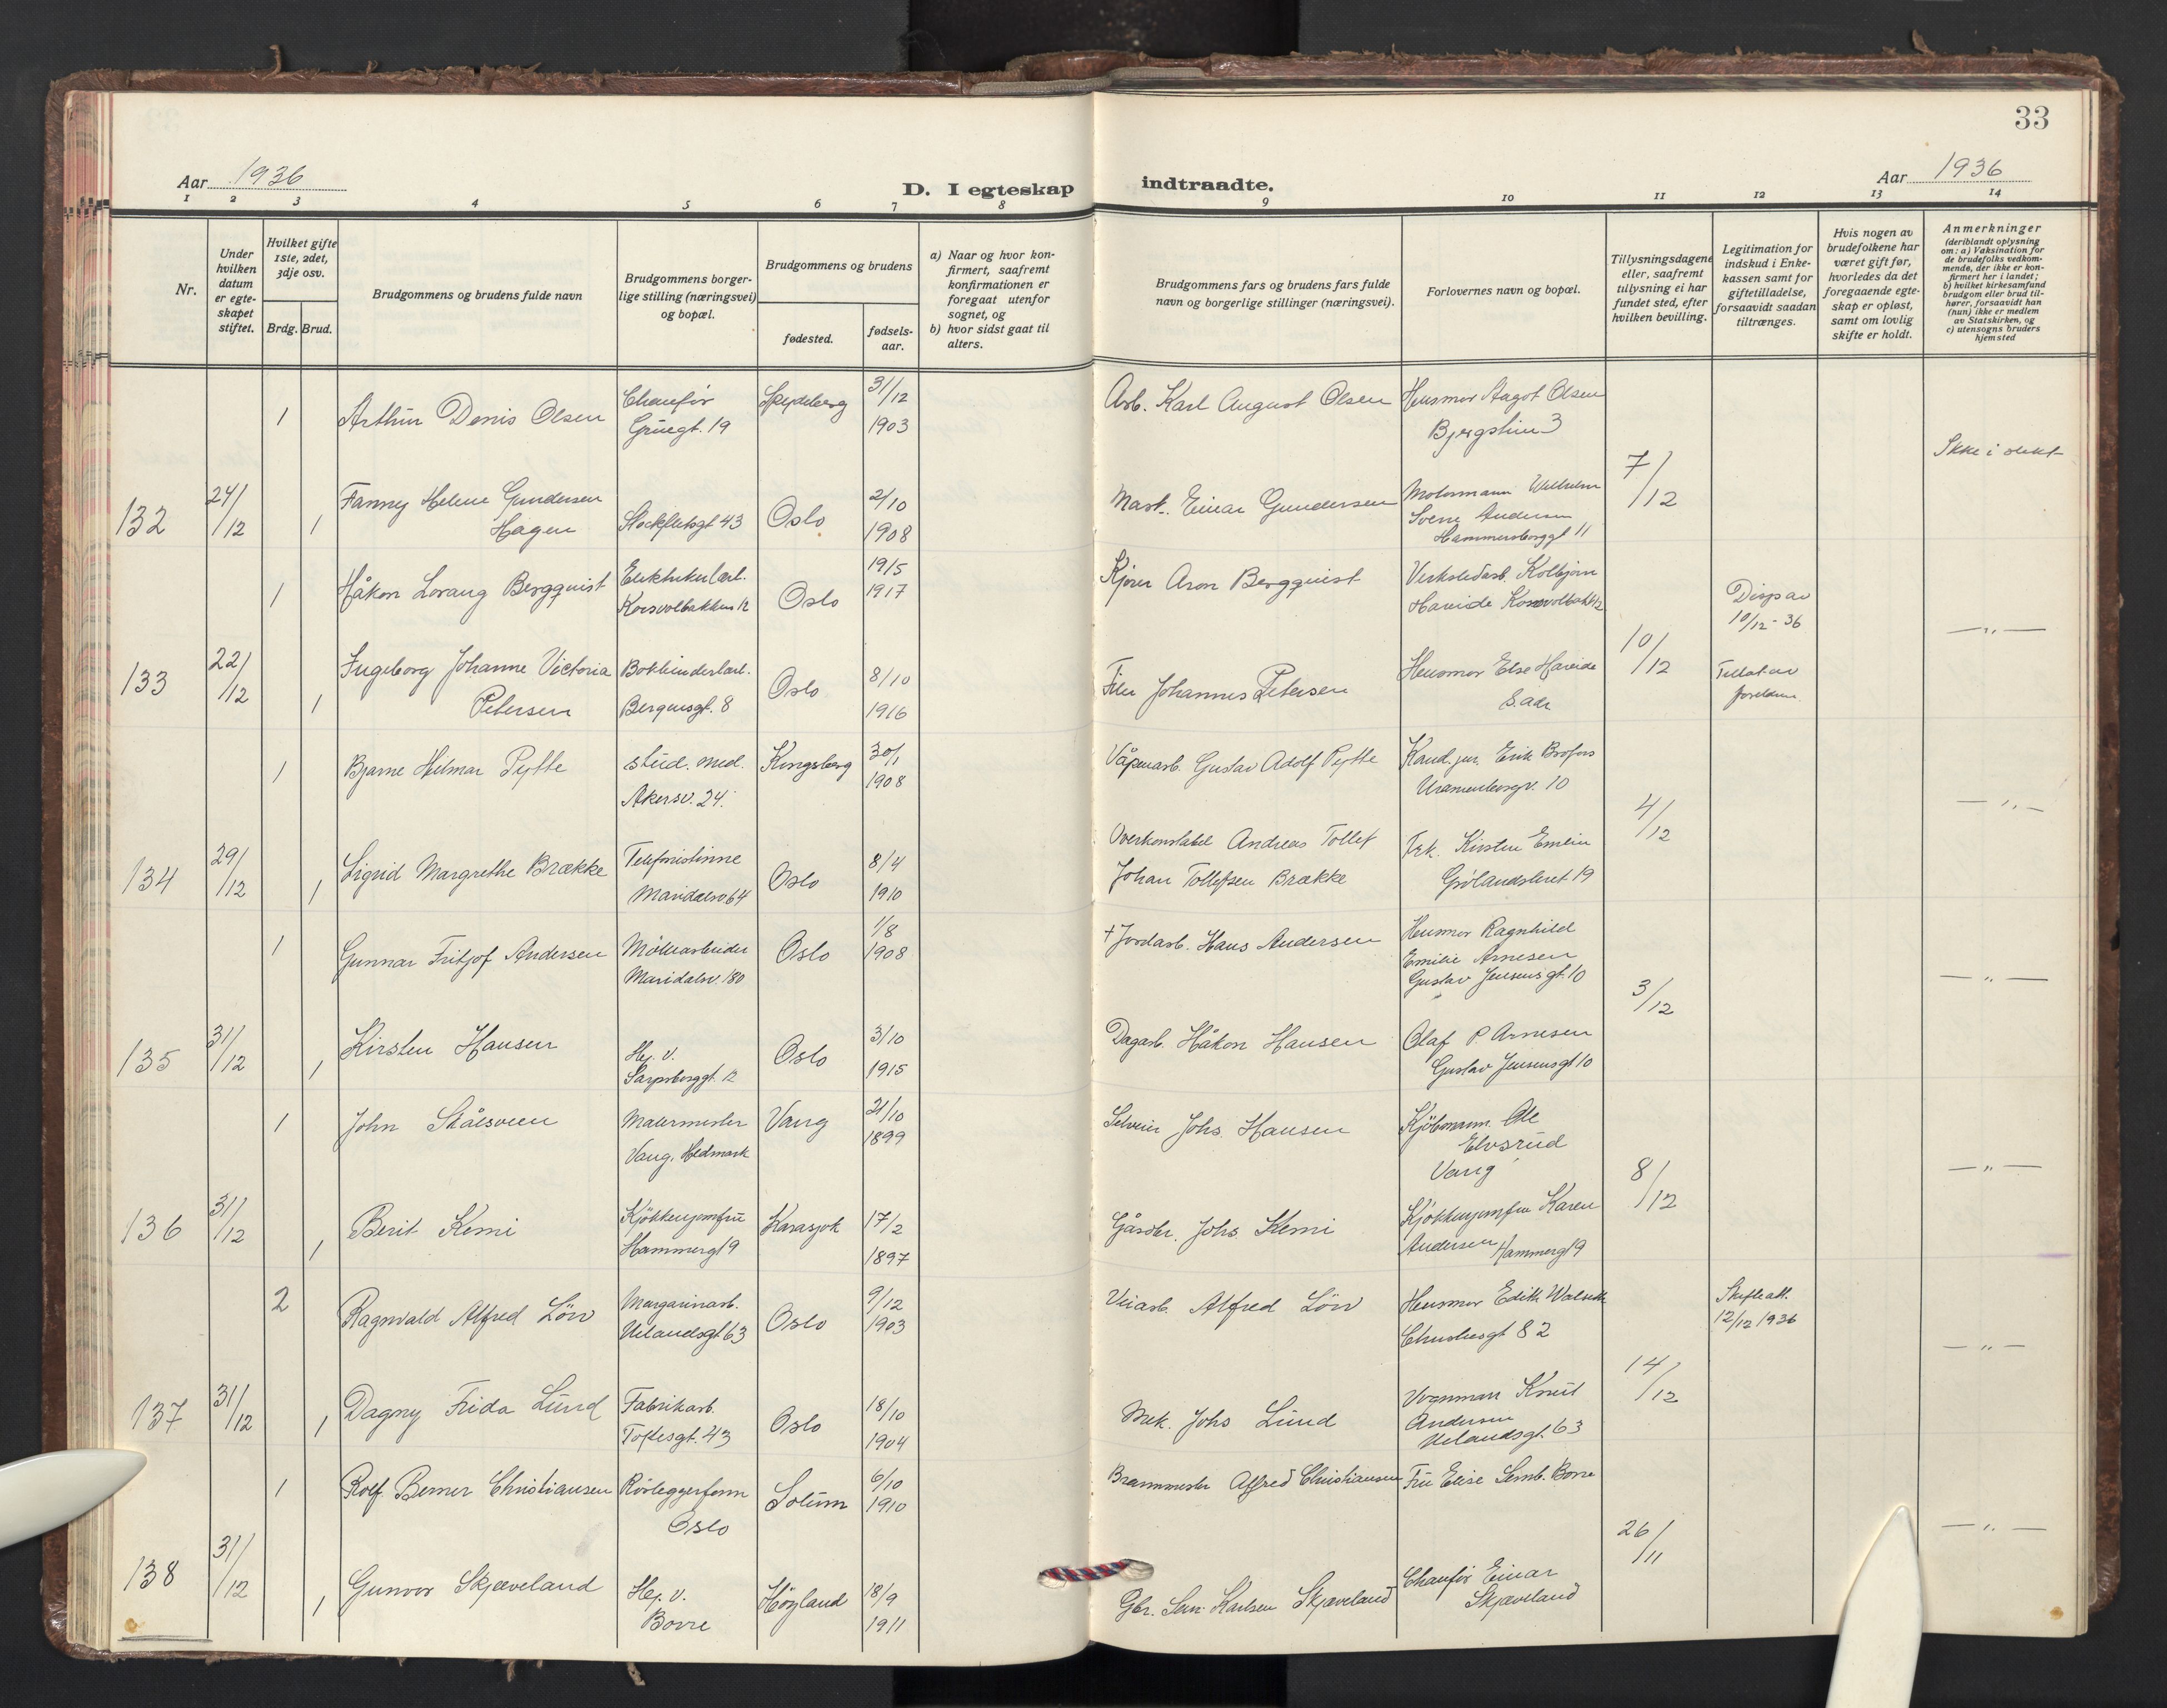 33
Aar 1936
D. I egteskap indtraadte.
Aar 1936
1 2 3 4 5 6 7 8 9 10 11 12 13 14
Nr.
Under hvilken datum er egte-skapet stiftet.
Hvilket gifte 1ste, 2det, 3dje osv.
Brdg. Brud.
Brudgommens og brudens fulde navn
Brudgommens borger-lige stilling (næringsvei) og bopæl.
Brudgommens og brudens
fødested.
fødsels-aar.
a) Naar og hvor kon-firmert, saafremt konfirmationen er foregaat utenfor sognet, og
b) hvor sidst gaat til alters.
Brudgommens fars og brudens fars fulde navn og borgerlige stillinger (næringsvei).
Forlovernes navn og bopæl.
Tillysningsdagene eller, saafremt tillysning ei har fundet sted, efter hvilken bevilling.
Legitimation for indskud i Enke-kassen samt for giftetilladelse, forsaavidt saadan tiltrænges.
Hvis nogen av brudefolkene har været gift før, hvorledes da det foregaaende egte-skap er opløst, samt om lovlig skifte er holdt.
Anmerkninger
(deriblandt oplysning om: a) Vaksination for de brudefolks vedkom-mende, der ikke er kon-firmert her i landet; b) hvilket kirkesamfund brudgom eller brud til-hører, forsaavidt han (hun) ikke er medlem av Statskirken, og c) utensogns bruders hjemsted
1 Arthur Denis Olsen Chaufør Spydeberg 31/12 Arb. Karl August Olsen Husmor Aagot Olsen
Gruegt. 19 1903 Bjergstien 3
Ikke i slekt
132 24/12 1 Fanny Helene Gundersen 2/10 Mask. Einar Gundersen Motormann Wilhelm 7/12
Hagen Stockfletsgt 43 Oslo 1908 Sverre Andersen
Hammersborggt 11
1 Håkon Lorang Bergquist Elektrikerlærl. Oslo 19/5 Kjører Aron Bergquist Verkstedarb. Kolbjørn Disp av
Korsvolbakken 12 1917 Hareide Korsvolbakk 12 10/12-36
— " —
133 22/12 1 Ingeborg Johanne Victoria Bokbinderlærl. Oslo 8/10 Filer Johannes Petersen Husmor Else Hareide 10/12 Tillat. av
Petersen Bergensgt. 8 1916 S. adr. foreldrene
1 Bjarne Hilmar Pytte stud. med. Kongsberg 30/1 Våpenarb. Gustav Adolf Pytte Kand. jur. Erik Brofoss
Akersv. 24. 1908 Uranienborgv. 10
— " —
134 29/12 1 Sigrid Margrethe Brække Telefonistinne Oslo 8/4 Overkonstabel Andreas Tollef Frk. Kirsten 4/12
Maridalsv 64 1910 Johan Tollefsen Brække Grølandsleret 19
1 Gunnar Fritjof Andersen Møllearbeider Oslo 1/8 + Jordarb. Hans Andersen Husmor Ragnhild
Maridalsv. 180 1908 Emilie Arnesen
Gustav Jensensgt. 10
— " —
135 31/12 1 Kirsten Hansen Hj. v. Oslo 3/10 Dagarb. Håkon Hansen Olaf P. Arnesen 3/12
Sarpsborggt. 12 1915 Gustav Jensensgt 10
1 John Skålsveen Malermester Vang 21/10 Selveier Johs. Hansen Kjöbmann Ole
Vang, Hedmark 1899 Elvsrud
Vang
— " —
136 31/12 1 Berit Kemi Kjøkkenjomfru Karasjok 17/2 Gårdbr. Johs. Kemi Kjøkkenjomfru Karen 8/12
Hammergt 9 1897 Andersen Hammergt 9
2 Ragnvald Alfred Löw Margarinarb. Oslo 9/12 Veiarb. Alfred Löw Husmor Edith Skifteatt.
Uelandsgt 63 1903 Christiesgt 82 12/12 1936
— " —
137 31/12 1 Dagny Frida Lund Fabrikarb. Oslo 18/10 Mek. Johs Lund Vognmann Knut 14/12
Toftesgt. 43 1904 Andersen
Uelandsgt. 63
1 Rolf Berner Christiansen Rörleggerform. Solum 6/10 Brannmester Alfred Christiansen Fru Elise Semb. Borre
Oslo 1910
— " —
138 31/12 1 Gunvor Skjæveland Hj. v. Høyland 18/9 Gbr. Karlsen Skjæveland Chaufør Einar 26/11
Borre 1911 Skjæveland